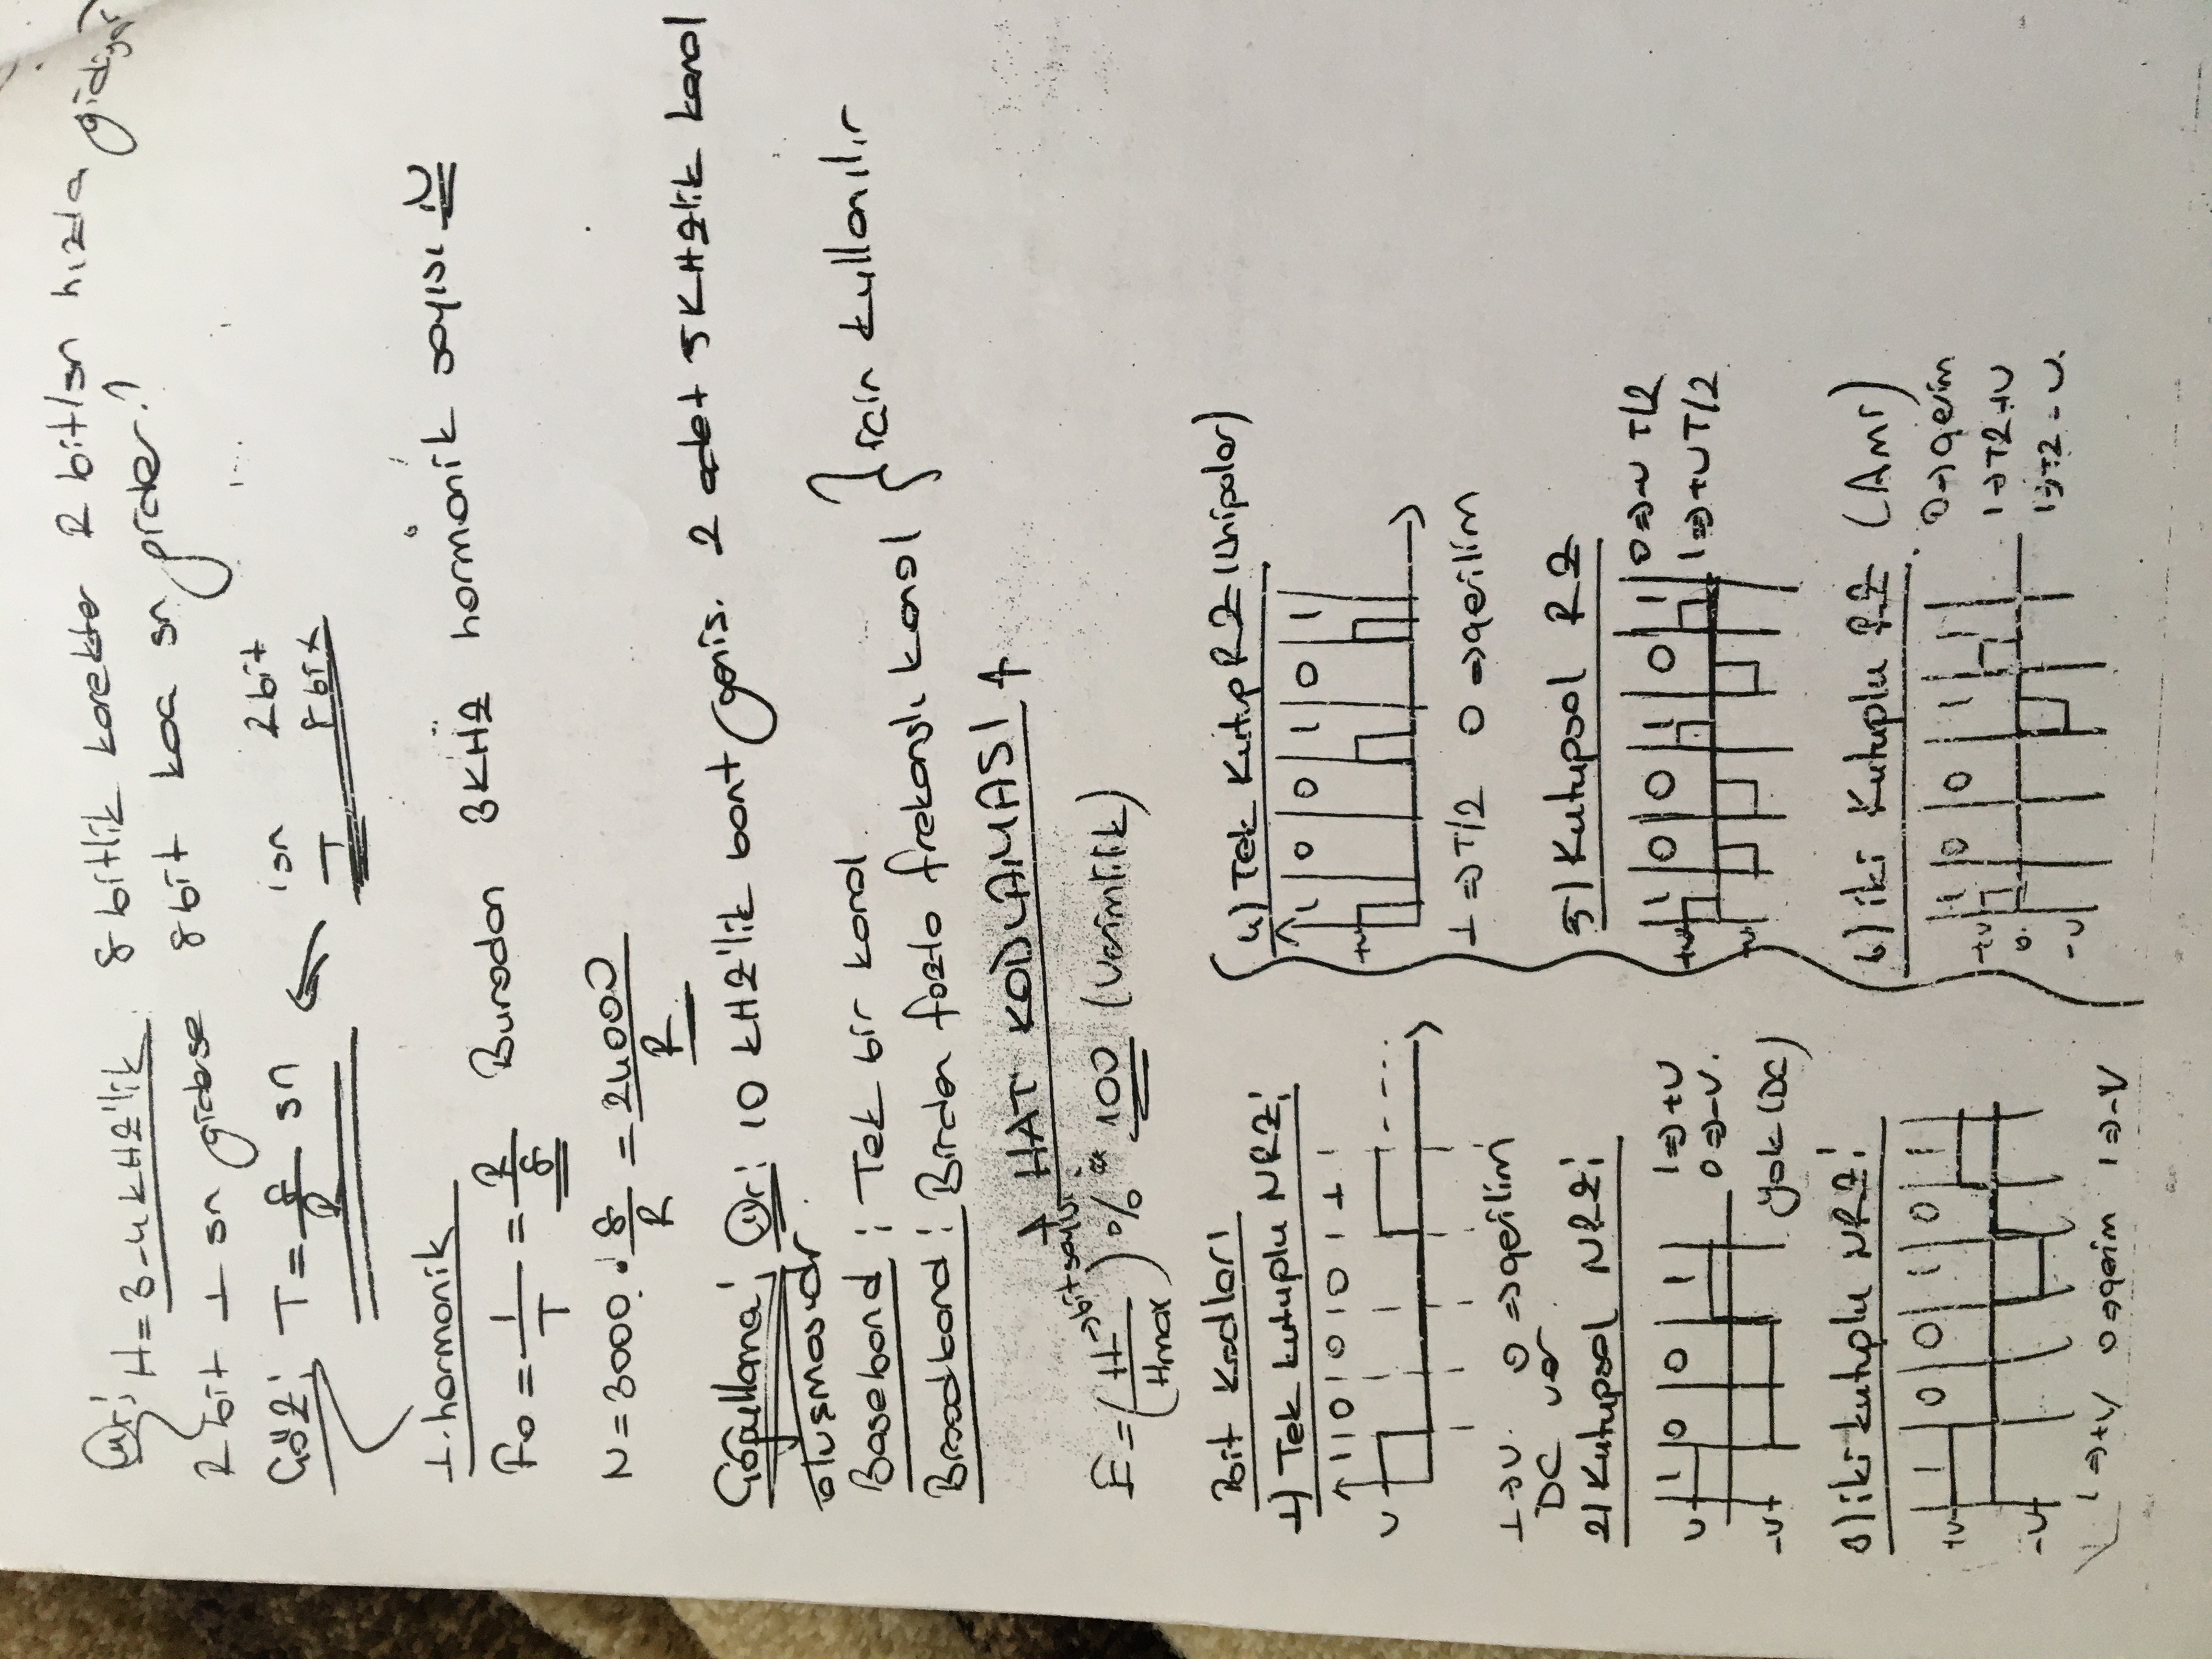 Ör: H= 3-4 kHZ'lik 8 bitlik karekter R bit/sn hızla gidiyor
R bit 1 sn giderse 8 bit kaç sn gider?
ÇöZ: T = 8/R sn ← 1sn Rbit
T 8bix
1. harmonik
Fo = 1/T = R/8 Buradan 3KHZ harmonik sayısı N
N = 3000 . 8/R = 24000/R
Çoğullama; Ör: 10 kHZ'lik bant geniş. 2 adet 5KHZlik kanal
oluşmasıdır.
Baseband : Tek bir kanal
Broadband : Birden fazla frekanslı kanal } için kullanılır
HAT KODLAMASI
E = (H → bit sayısı / Hmax) % * 100 (Verimlilik)
Bit Kodları
1) Tek kutuplu NRZ:
1 0 0 0 1
V
1 ⇒ V. 0 ⇒ gerilim
DC var
2) Kutupsal NRZ:
1 0 0 1
V
-V
1 ⇒ +V
0 ⇒ -V.
yok (DC)
3) iki kutuplu NRZ:
1 0 0 1 0 1
+V
-V
1 ⇒ +V 0 ⇒ gerim 1 ⇒ -V
4) Tek Kutup RZ (Unipolar)
1 0 0 1 0 1
+V
1 ⇒ T/2 0 ⇒ gerilim
5) Kutupsal RZ
1 0 0 1 0 1
+V
-V
0 ⇒ -V T/2
1 ⇒ +V T/2
6) iki Kutuplu RZ (AmI)
1 0 0 1 1
+V
0
-V
0 → gerim
1 → T2 +V
1 → T2 - V.